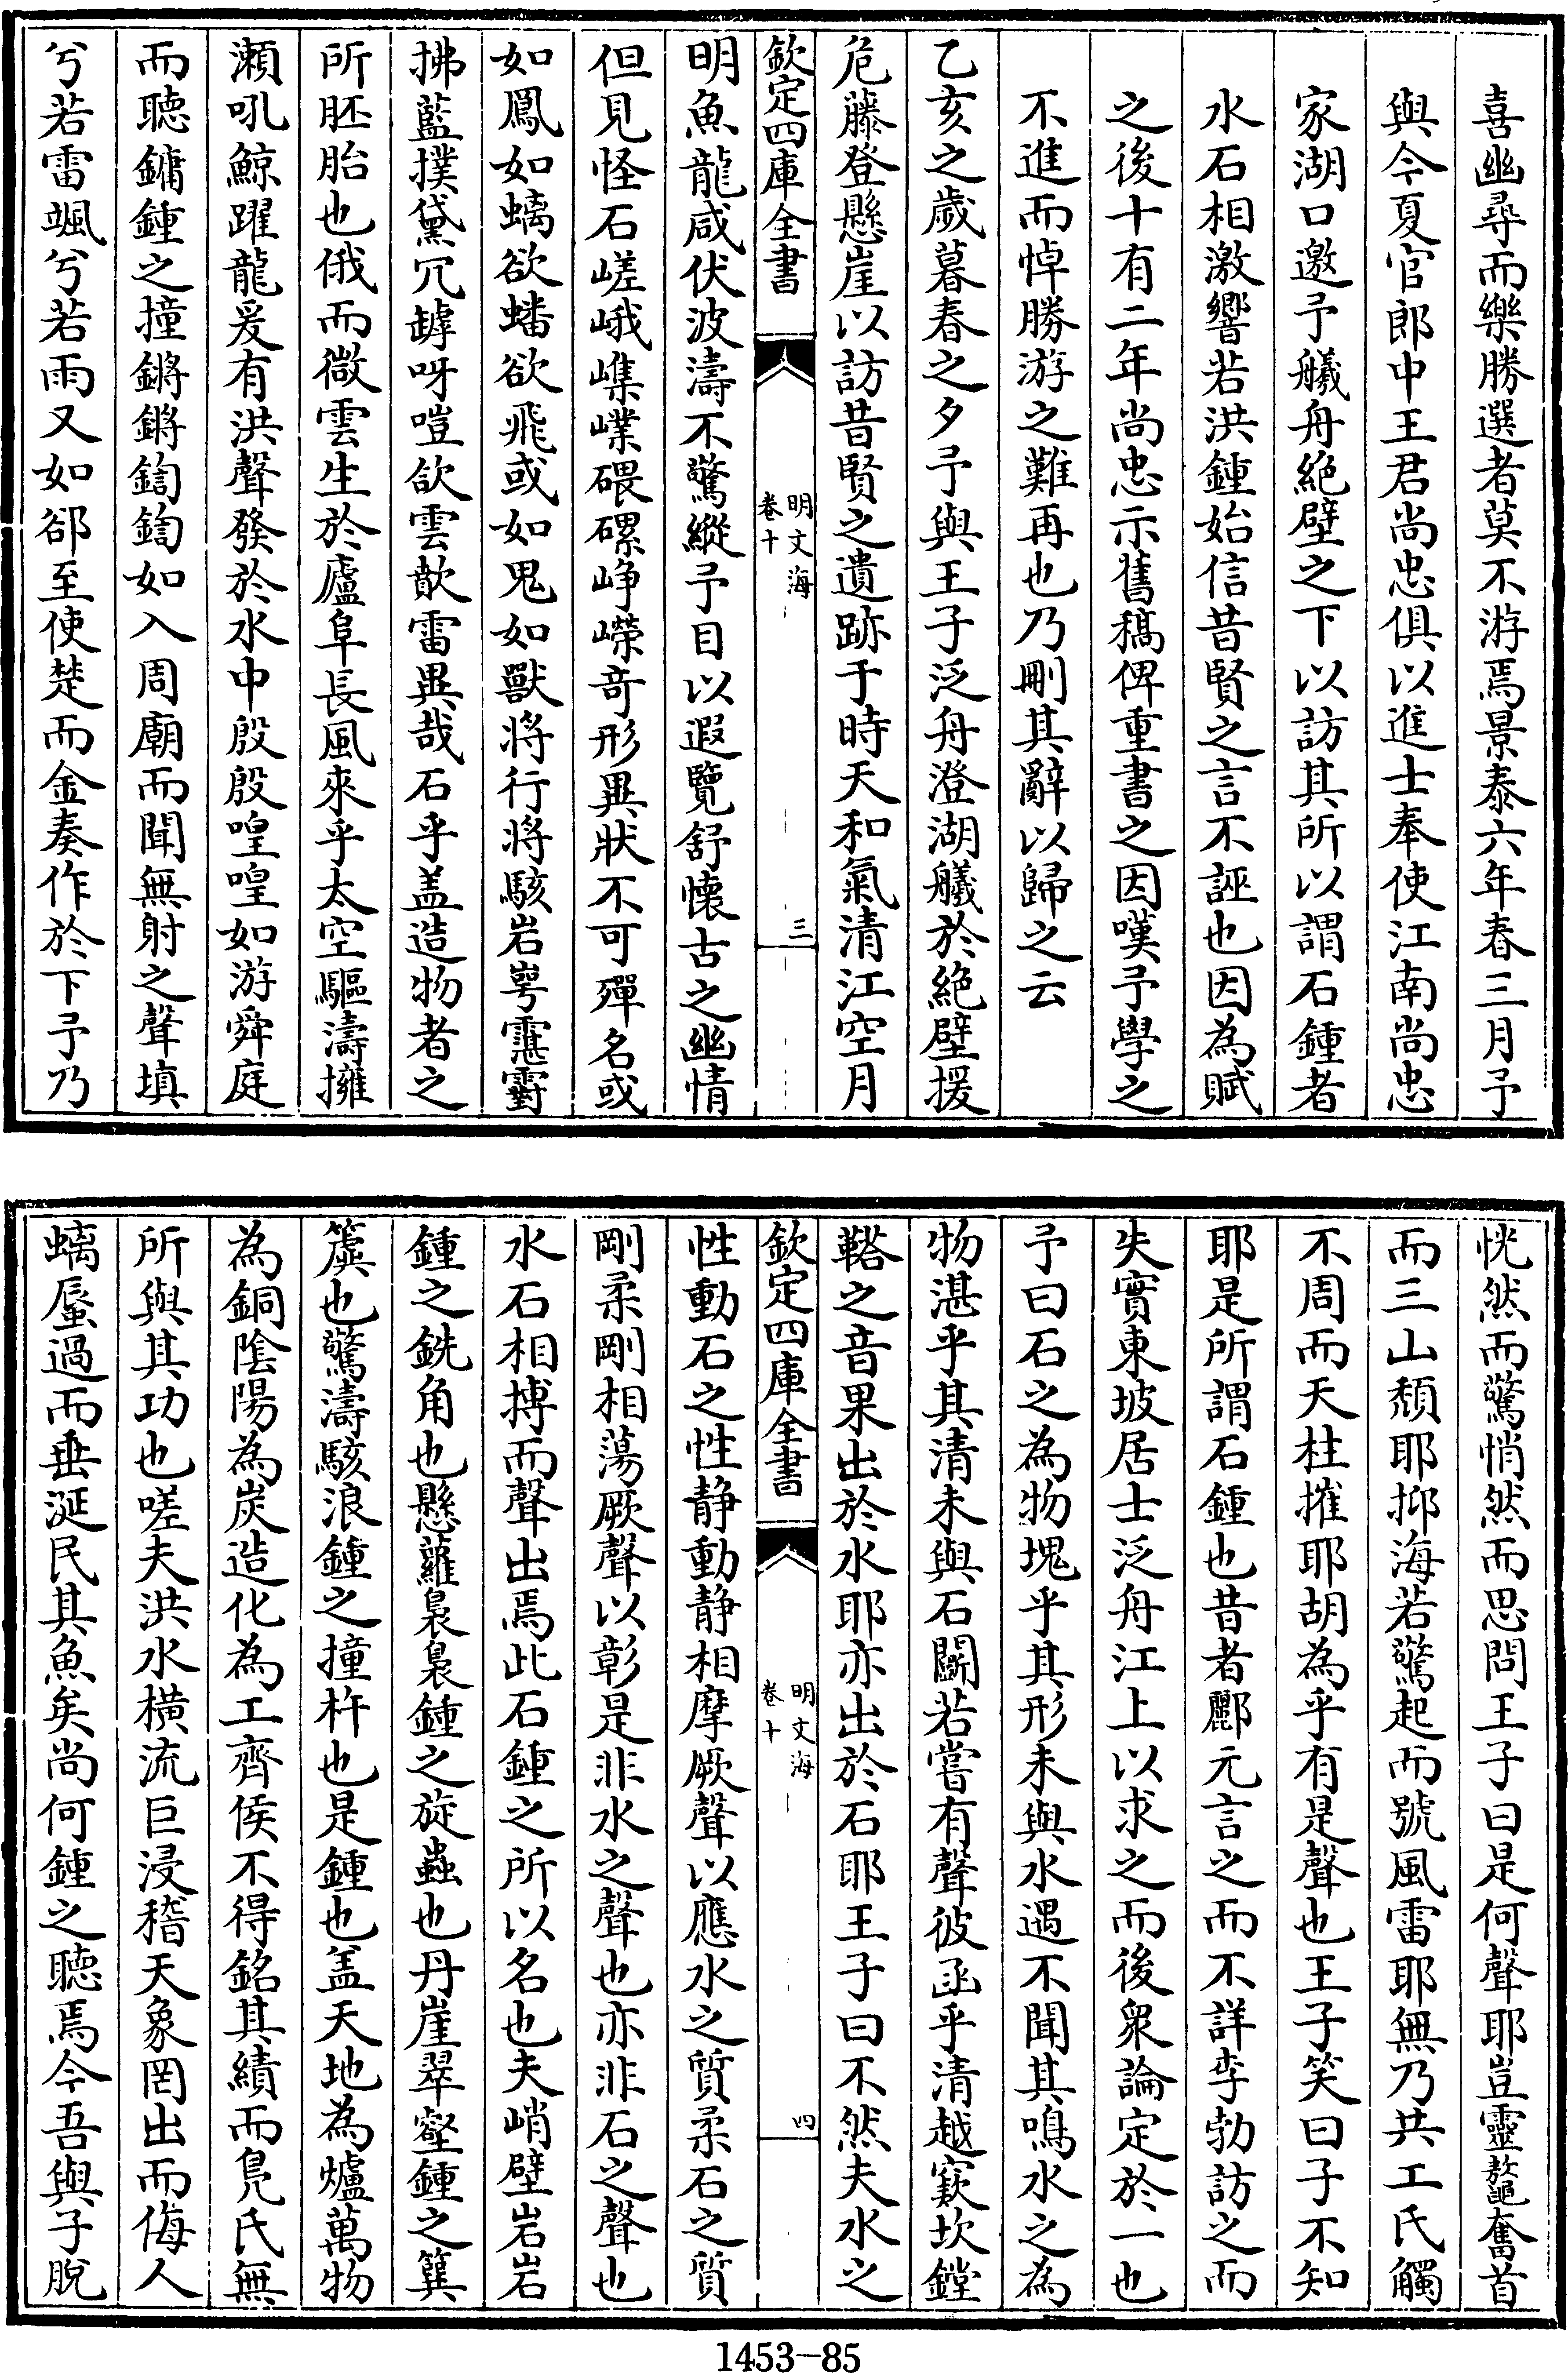 喜幽尋而樂勝選者莫不游焉景泰六年春三月予
與今夏官郎中王君尚忠俱以進士奉使江南尚忠
家湖口邀予艤舟絶壁之下以訪其所以謂石鍾者
水石相激響若洪鍾始信昔賢之言不誣也因為賦
之後十有二年尚忠示舊稿俾重書之因嘆予學之
不進而悼勝游之難再也乃刪其辭以歸之云
乙亥之歲暮春之夕予與王子泛舟澄湖艤於絶壁援
危藤登懸崖以訪昔賢之遺跡于時天和氣清江空月
欽定四庫全書
明文海
卷十
三
明魚龍咸伏波濤不驚縱予目以遐覽舒懷古之幽情
但見怪石嵯峨嶫磼碨磥崢嶸竒形異狀不可殫名或
如鳳如螭欲蟠欲飛或如鬼如獸將行將駭岩崿靄霨
拂藍撲黛冗罅呀嗌欲雲歕雷異哉石乎盖造物者之
所胚胎也俄而微雲生於廬阜長風來乎太空驅濤擁
瀨吼鯨躍龍爰有洪聲發於水中殷殷喤喤如游舜庭
而聽鏞鍾之撞鏘鏘鍧鍧如入周廟而聞無射之聲填
兮若雷颯兮若雨又如郤至使楚而金奏作於下予乃
恍然而驚悄然而思問王子曰是何聲耶豈靈鼇奮首
而三山頹耶抑海若驚起而號風雷耶無乃共工氏觸
不周而天柱摧耶胡為乎有是聲也王子笑曰子不知
耶是所謂石鍾也昔者酈元言之而不詳李勃訪之而
失實東坡居士泛舟江上以求之而後衆論定於一也
予曰石之為物塊乎其形未與水遇不聞其鳴水之為
物湛乎其清未與石鬬若嘗有聲彼函乎清越窾坎鏜
鞳之音果出於水耶亦出於石耶王子曰不然夫水之
欽定四庫全書
明文海
卷十
四
性動石之性静動静相摩厥聲以應水之質柔石之質
剛柔剛相蕩厥聲以彰是非水之聲也亦非石之聲也
水石相搏而聲出焉此石鍾之所以名也夫峭壁岩岩
鍾之銑角也懸蘿裊裊鍾之旋蟲也丹崖翠壑鍾之簨
簴也驚濤駭浪鍾之撞杵也是鍾也盖天地為爐萬物
為銅陰陽為炭造化為工齊侯不得銘其績而鳧氏無
所與其功也嗟夫洪水橫流巨浸稽天象罔出而侮人
螭蜃過而垂涎民其魚矣尚何鍾之聽焉今吾與子脫
1453—85